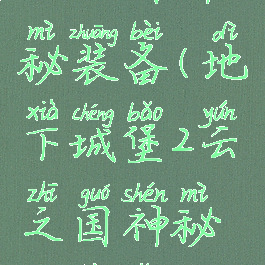 mì zhuāng bèi dì
秘装备(地
xià chéng bǎo yún
下城堡2云
zhī guó shén mì
之国神秘